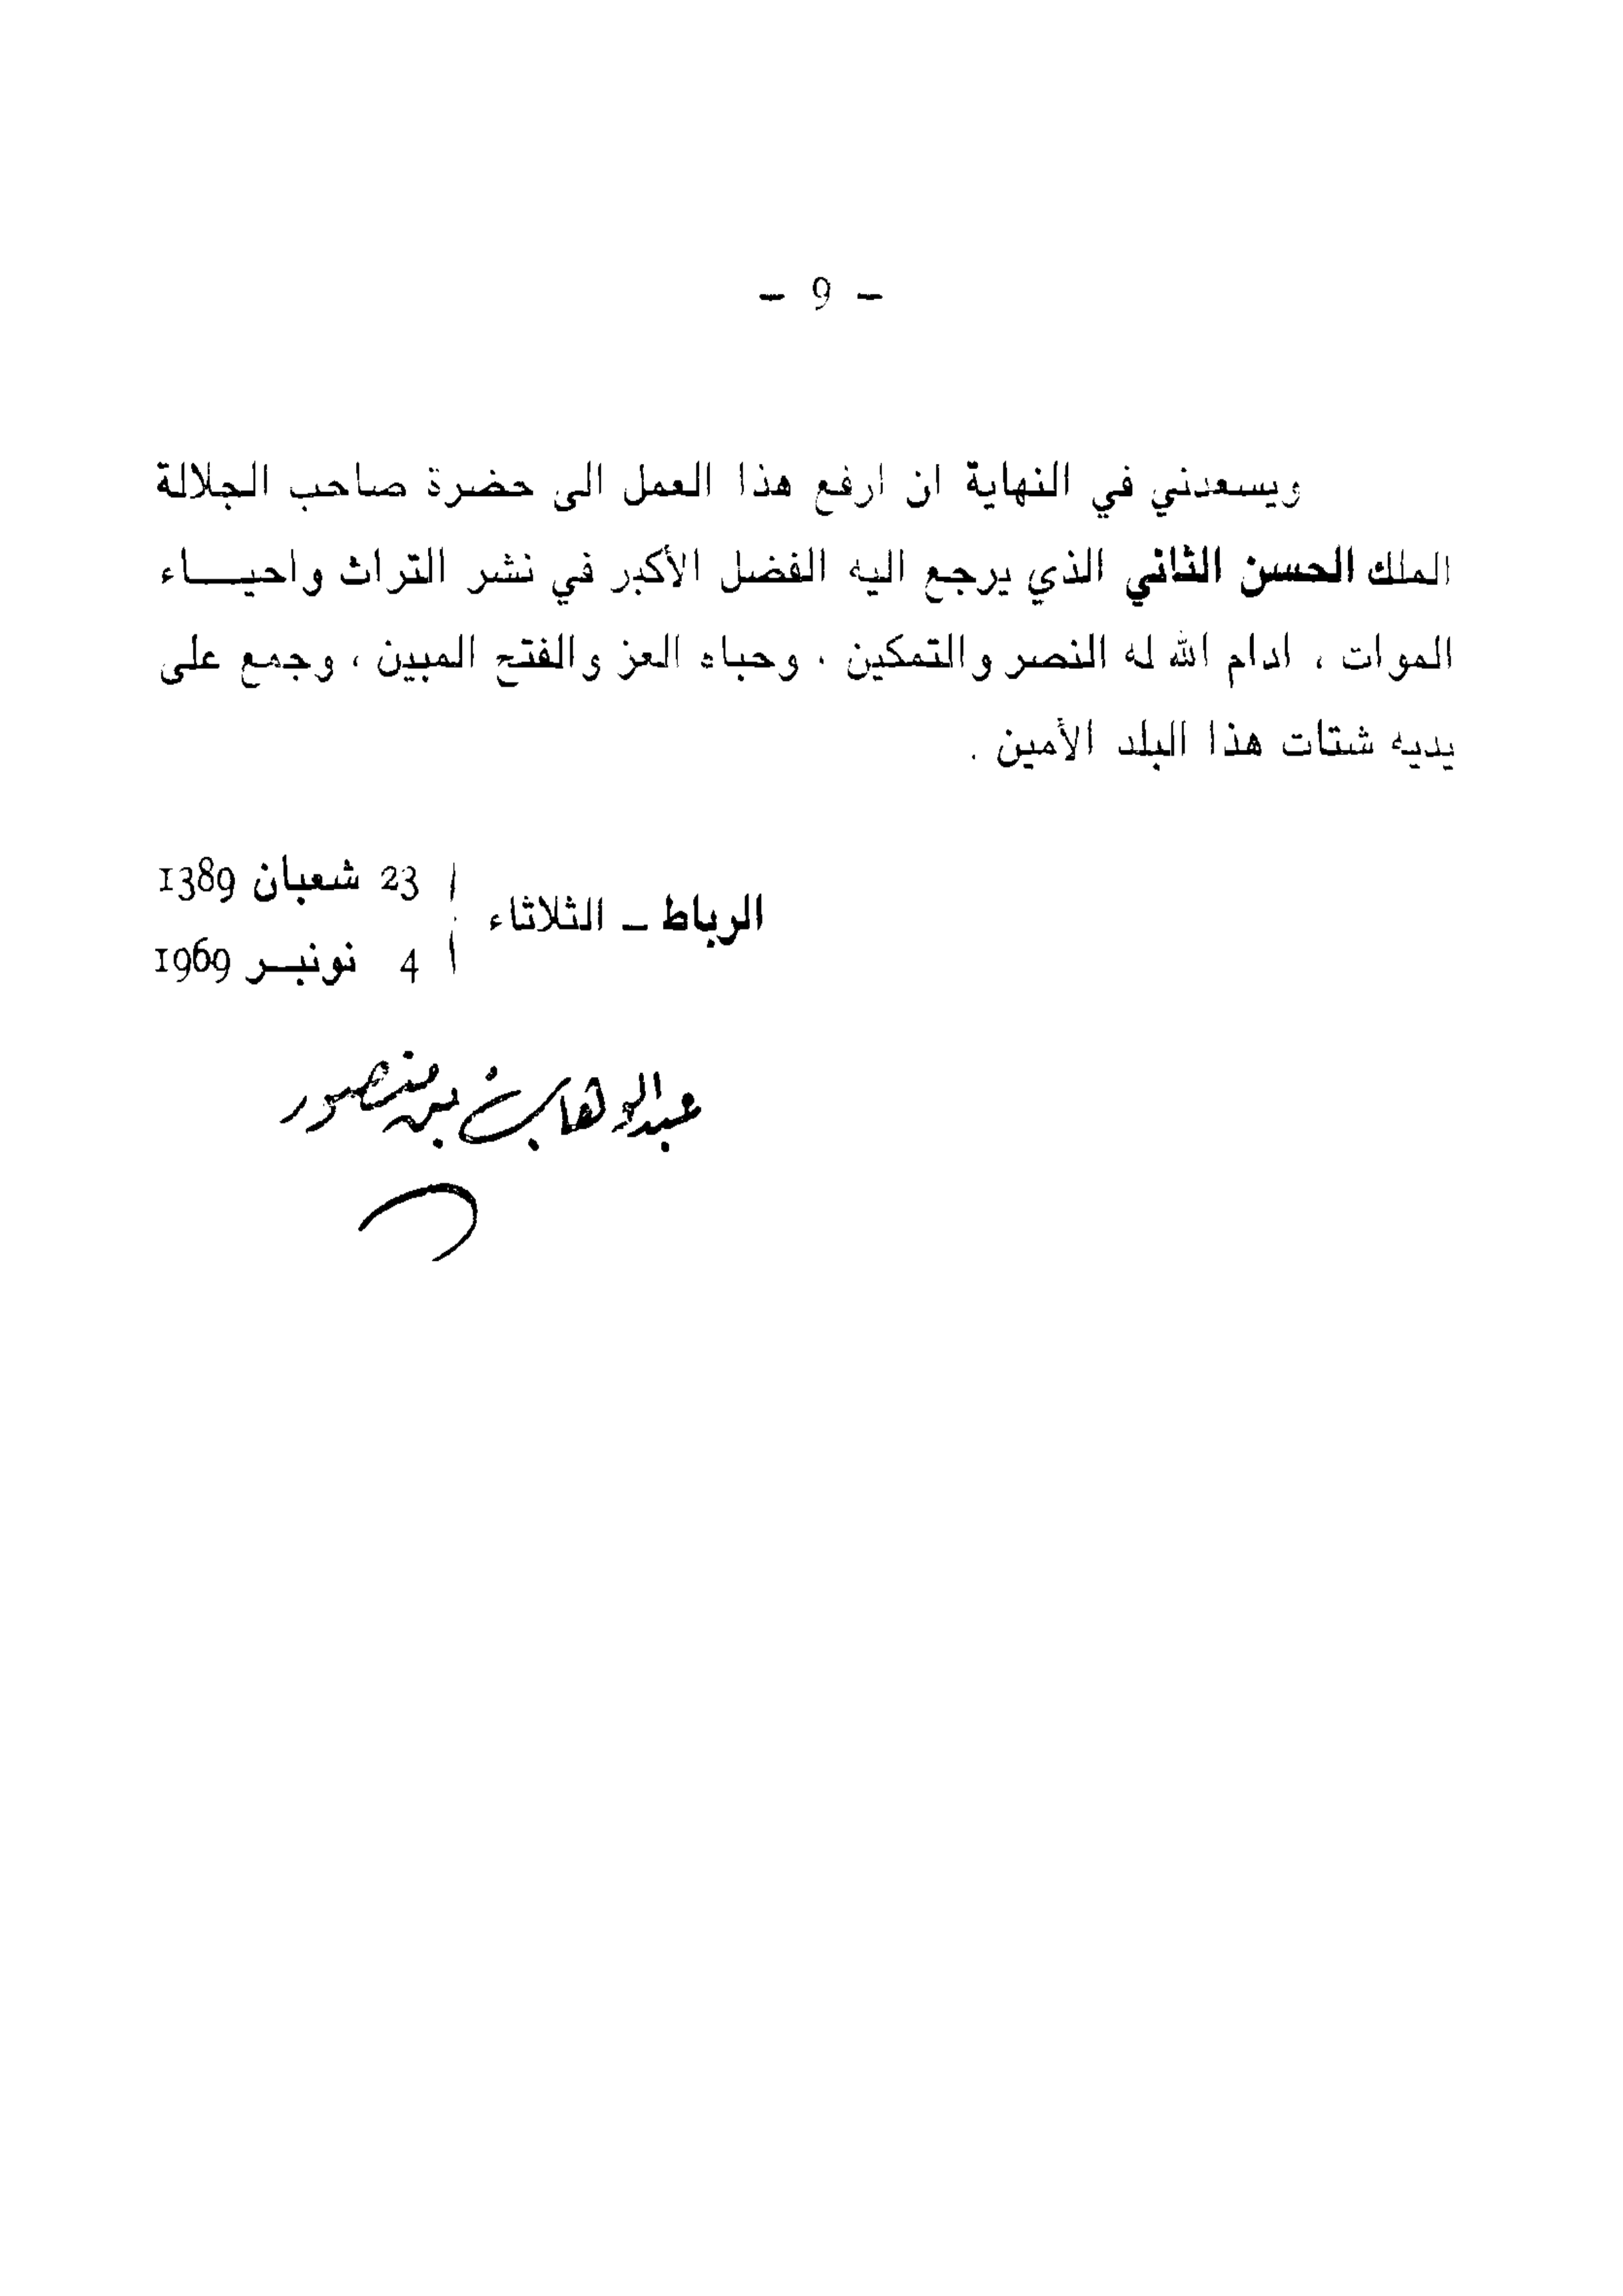 - 9 -
ويسعدني في النهاية ان ارفع هذا العمل الى حضرة صاحب الجلالة
الملك الحسن الثاني الذي يرجع اليه الفضل الأكبر في نشر التراث واحيـــاء
الموات ، ادام الله له النصر والتمكين ، وحباه العز والفتح المبين ، وجمع على
يديه شتات هذا البلد الأمين .
الرباط – الثلاثاء
23 شعبان 1389
4 نونبـر 1969
عبد الوهاب بن منصور